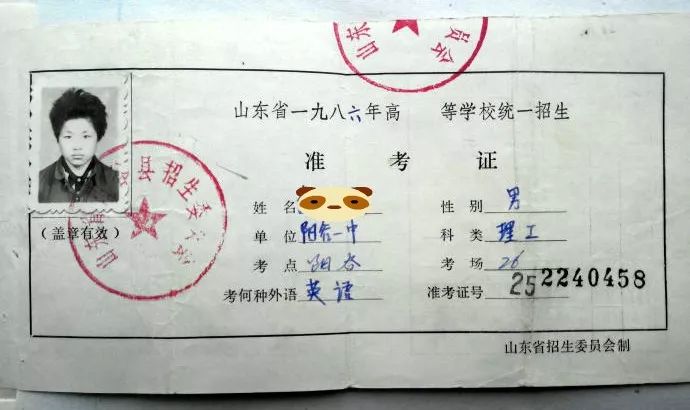 山东 员会
山东省一九八六年高 等学校统一招生
准考证
山东省 县招生委
姓名
性别 男
(盖章有效)
单位 阳谷一中
科类 理工
考点 阳谷
考场 26
考何种外语 英语
准考证号 25 2240458
山东省招生委员会制